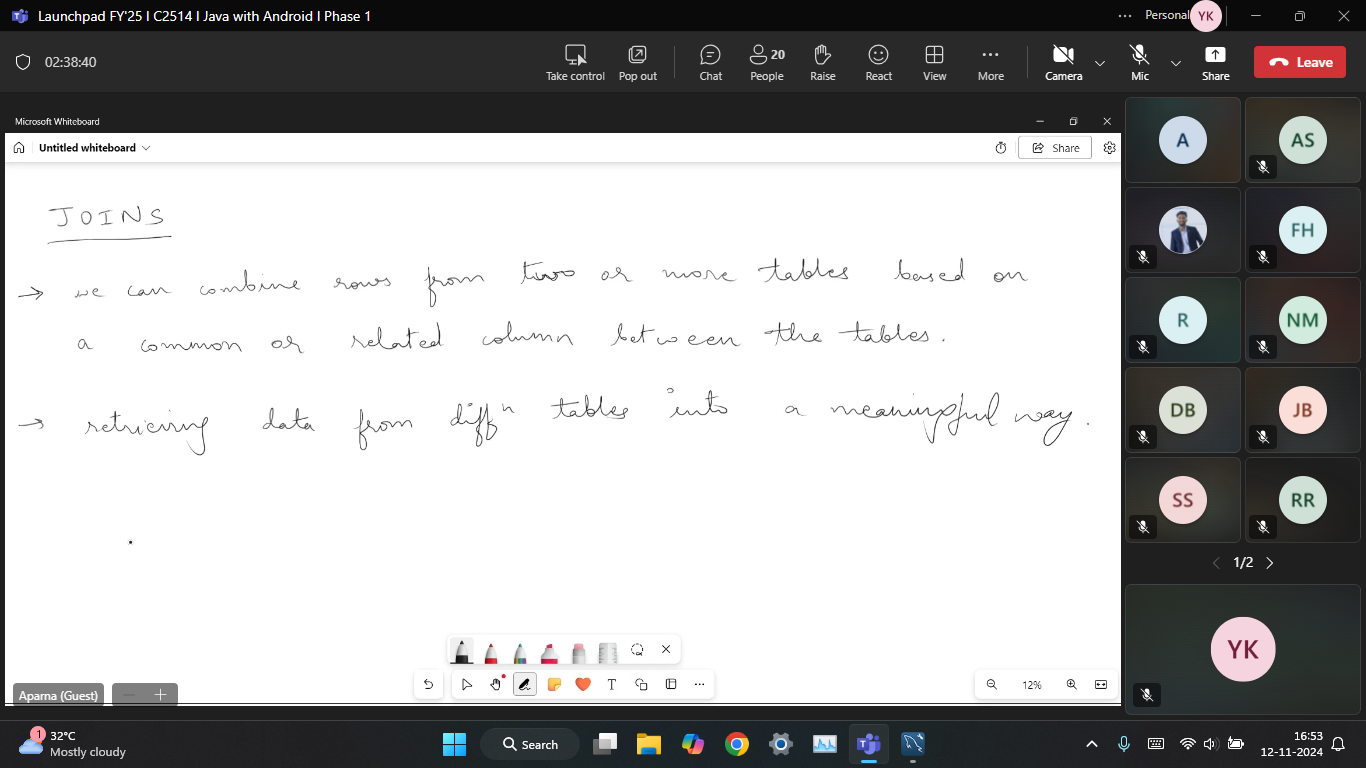 Launchpad FY'25 I C2514 I Java with Android I Phase 1
Personal
YK
02:38:40
Take control
Pop out
Chat
20
People
Raise
React
View
More
Camera
Mic
Share
Leave
Microsoft Whiteboard
Untitled whiteboard
Share
JOINS
→ we can combine rows from two or more tables based on
a common or related column between the tables.
→ retrieving data from diffⁿ tables into a meaningful way.
A
AS
FH
R
NM
DB
JB
SS
RR
1/2
YK
Aparna (Guest)
T
12%
1
32°C
Mostly cloudy
Search
16:53
12-11-2024